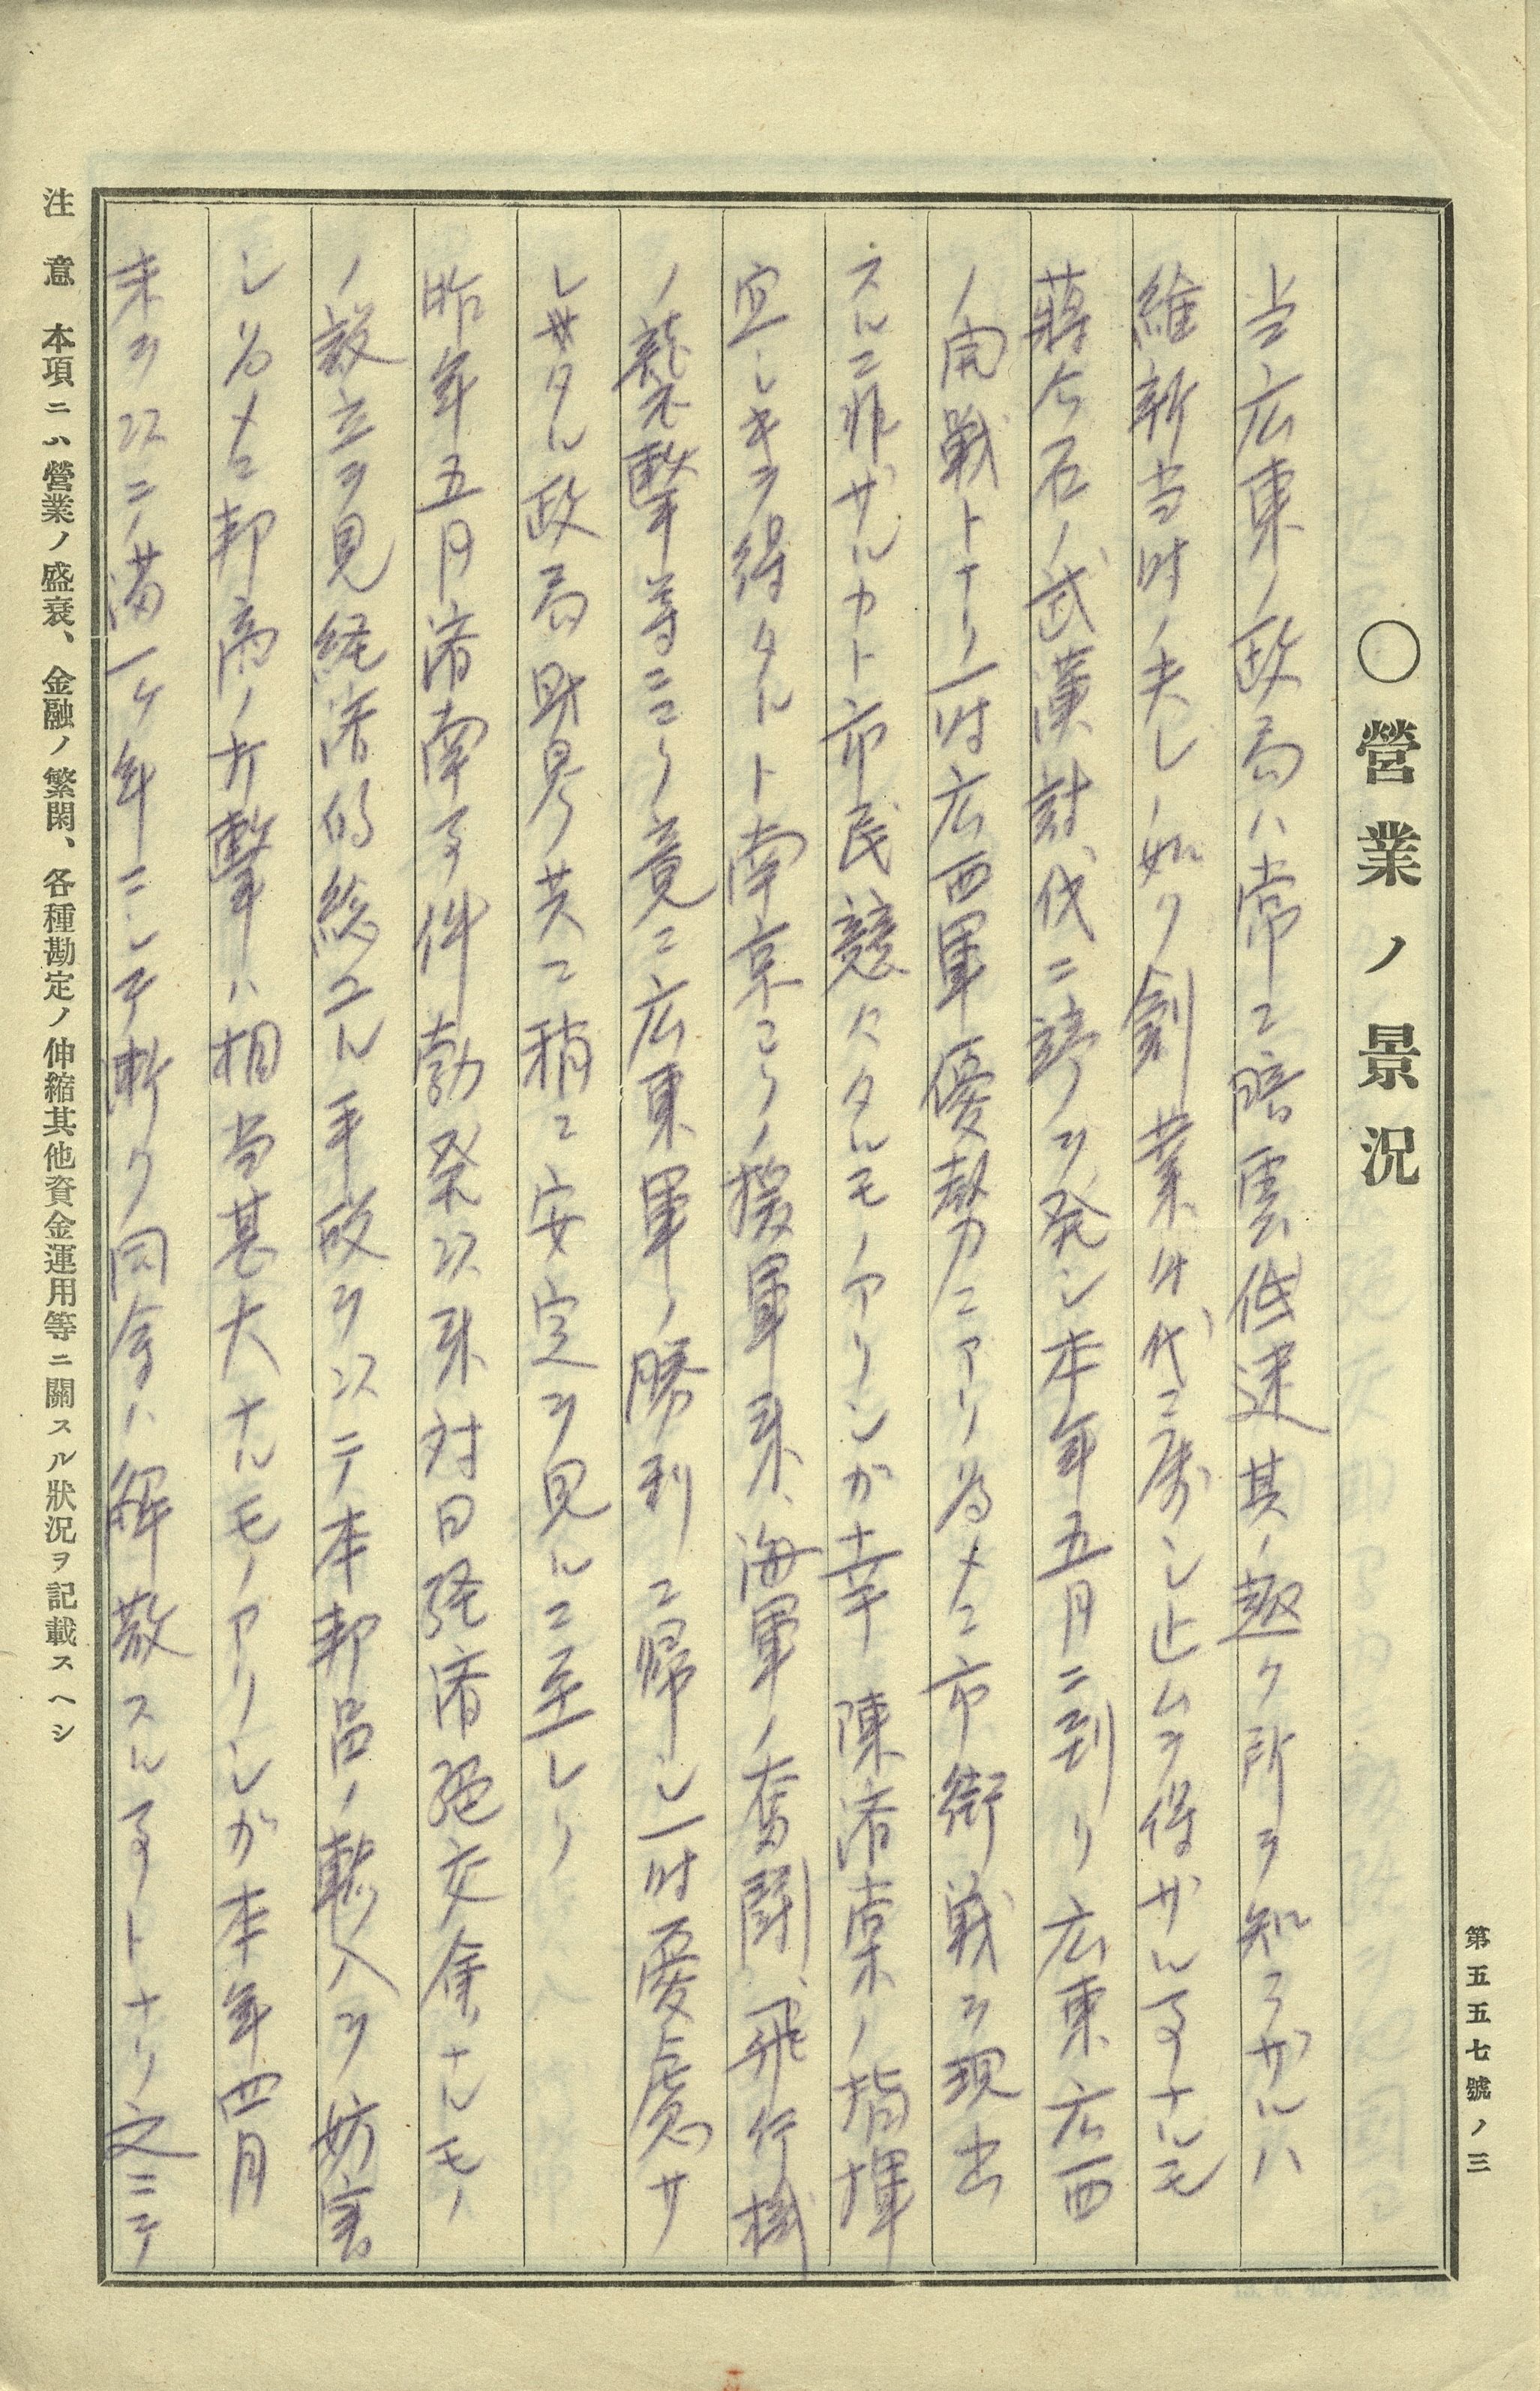 第五五七號ノ三
〇營業ノ景況
当広東ノ政局ハ常ニ暗雲低迷其ノ趣ク所ヲ知ラザルハ
維新当時ノ夫レノ如ク創業時代ニ屡シ止ムヲ得ザル事ナルモ
蒋介石ノ武漢討伐ニ端ヲ発シ本年五月ニ到リ広東広西
ノ開戦トナリ一時広西軍優勢ニアリ為メニ市街戦ヲ現出
スルニ非ザルカト市民競々タルモノアリシガ幸陳済棠ノ指揮
宜シキヲ得タルト南京ヨリノ援軍来、海軍ノ奮闘、飛行機
ノ襲撃等ニヨリ竟ニ広東軍ノ勝利ニ帰シ一時憂慮サ
レ居タル政局財界共ニ稍ニ安定ヲ見ルニ至レリ
昨年五月済南事件勃発以来対日経済絶交会ナルモノ
ノ設立ヲ見経済的総ユル手段ヲ以テ本邦品ノ輸入ヲ妨害
シ為メニ邦商ノ打撃ハ相当甚大ナルモノアリシガ本年四月
末ヲ以テ満一ケ年ニシテ漸ク同会ハ解散スル事トナリ之ニテ
注意　本項ニハ營業ノ盛衰、金融ノ繁閑、各種勘定ノ伸縮其他資金運用等ニ關スル狀況ヲ記載スヘシ